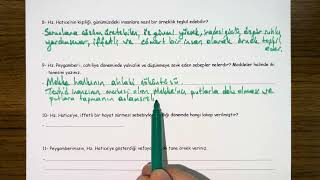 8- Hz. Hatice'nin kişiliği, günümüzdeki insanlara nasıl bir örneklik teşkil edebilir?
Sorunlara çözüm üretebilen, öz güveni yüksek, iradesi güçlü, özgür ruhlu
yardımsever, iffetli ve cömert bir insan olarak örnek teşkil
eder.
9- Hz. Peygamberi, cahiliye döneminde yalnızlık ve düşünmeye sevk eden sebepler nelerdir? Maddeler halinde iki
tanesini yazınız.
Mekke halkının ahlaki çöküntüsü
Tevhid inancının merkezi olan Mekke'nin putlarla dolu olması ve
putlara tapmanın anlamsızlığı
10- Hz. Hatice'ye, iffetli bir hayat sürmesi sebebiyle
döneminde hangi lakap verilmiştir?
11- Peygamberimizin, Hz. Hatice'ye gösterdiği vefaya
tane örnek veriniz.